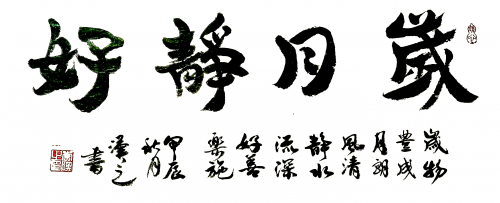 歲月靜好
歲物
豐成
月朗
風清
靜水
流深
好善
樂施
甲辰
秋月
漢之
書